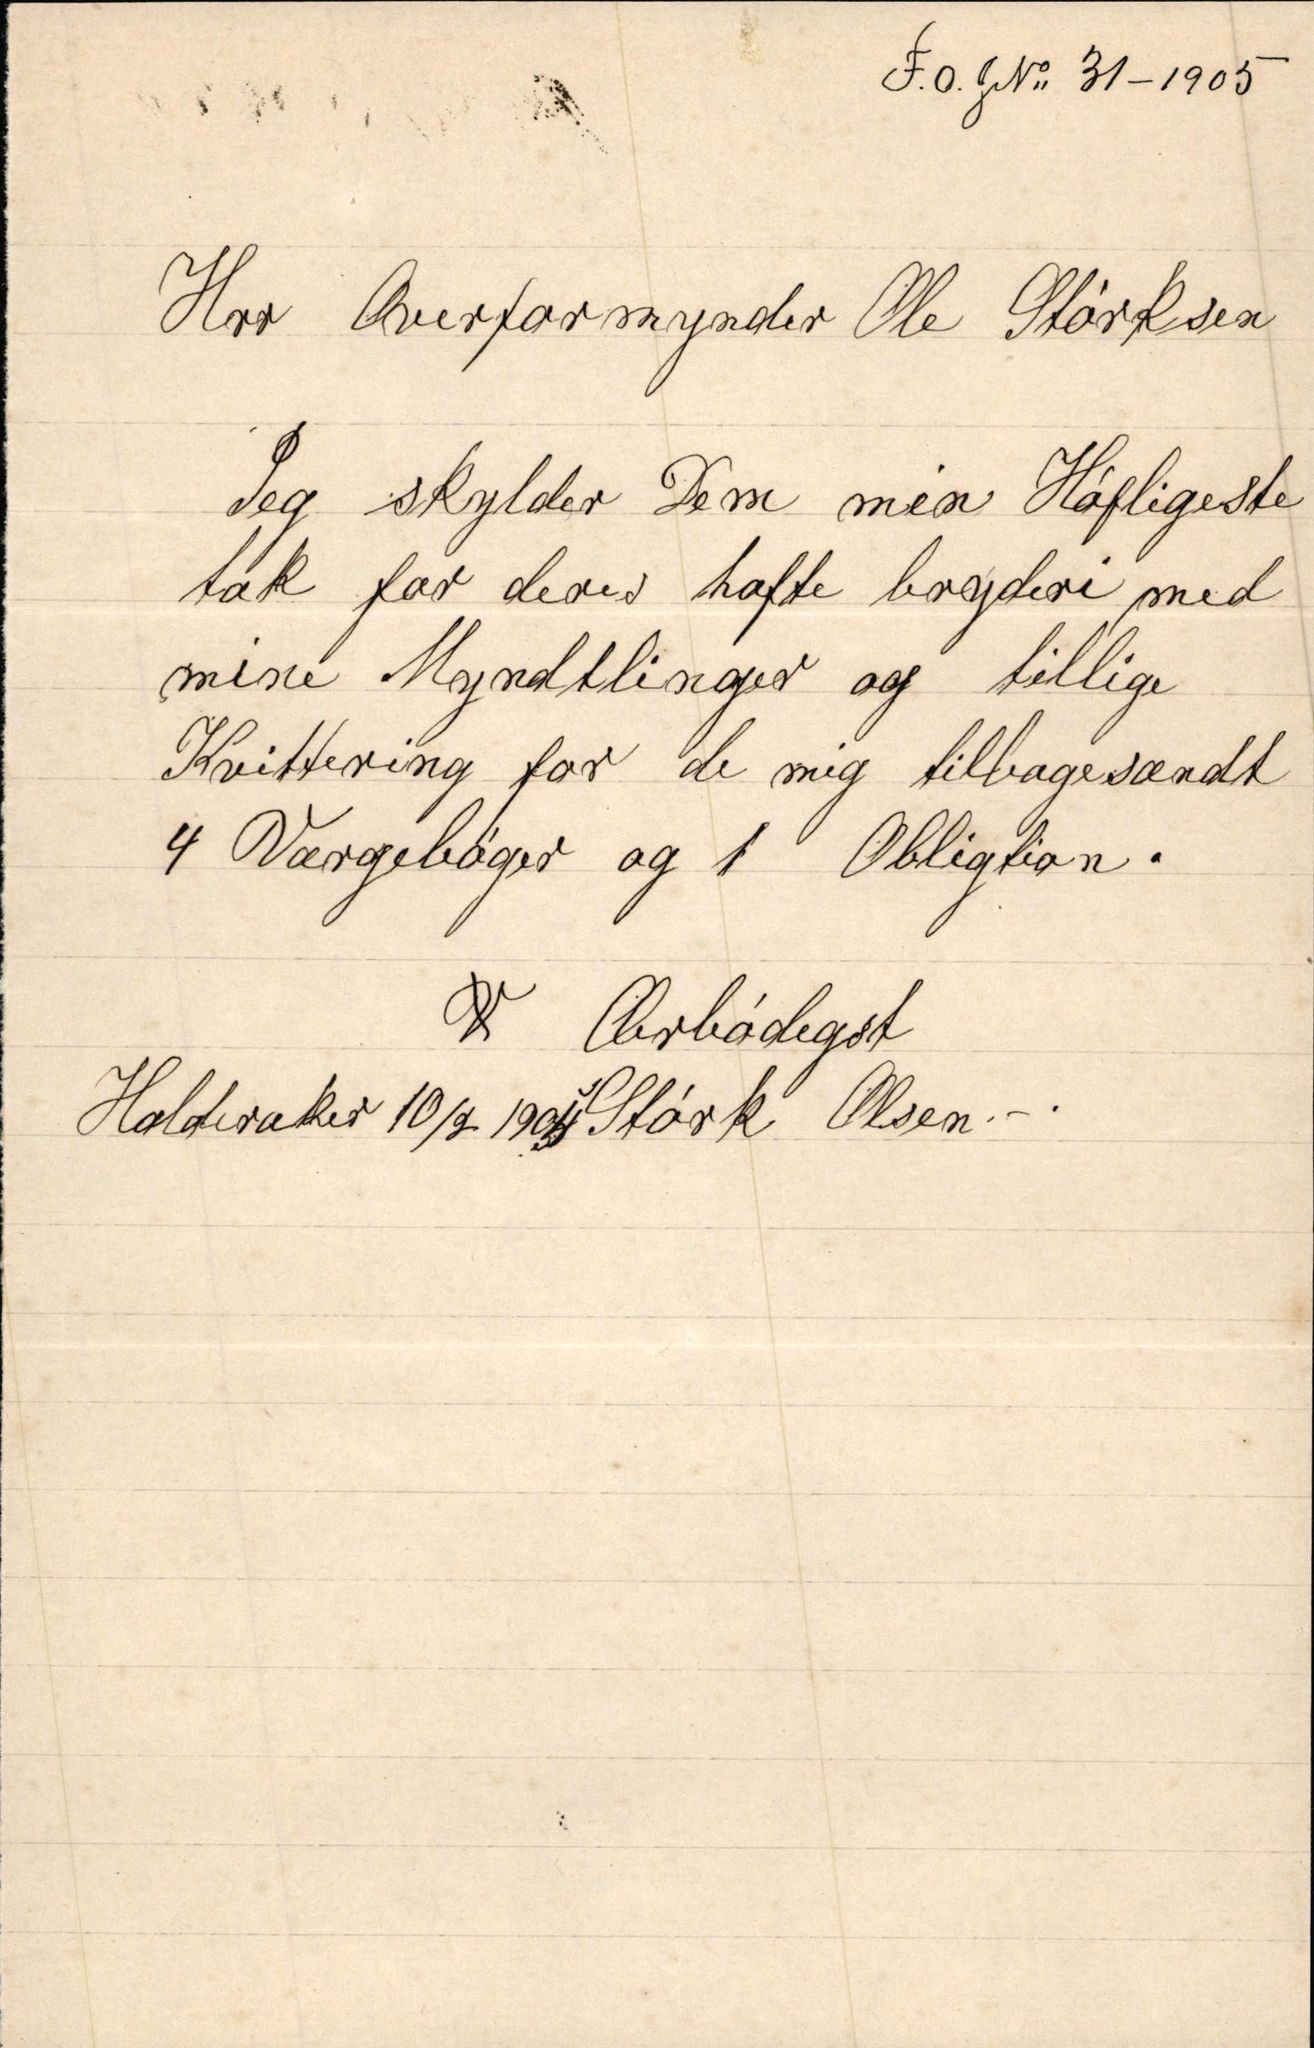 F.O. JNo: 31-1905
Hrr Overformynder Ole Störksen
Jeg skylder Dem min Höfligeste
tak for deres hafte bryderi med
mine Myndtlinger og tillige
Kvittering for de mig tilbagesændt
4 Værgeböger og 1 Obligtion.
Ærbödigst
Halderaker 10/2 1905 Störk Olsen.-.